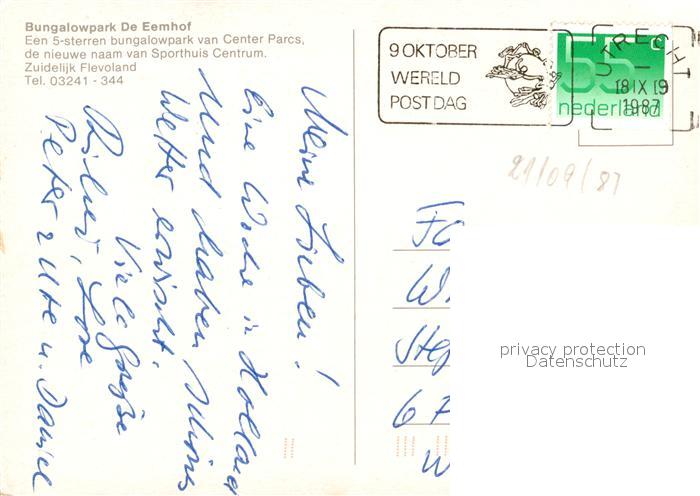 Bungalowpark De Eemhof
Een 5-sterren bungalowpark van Center Parcs,
de nieuwe naam van Sporthuis Centrum.
Zuidelijk Flevoland
Tel. 03241 - 344
9 OKTOBER
WERELD
POSTDAG
55 c
nederland
UTRECHT
18 IX 19
1987
21/09/87
Meine Lieben!
Eine Woche in Holland
und haben schönes
Wetter erwischt.
Viele Grüße
Peter, Ute u. Daniel
Fa
W
Step
67
W
privacy protection
Datenschutz